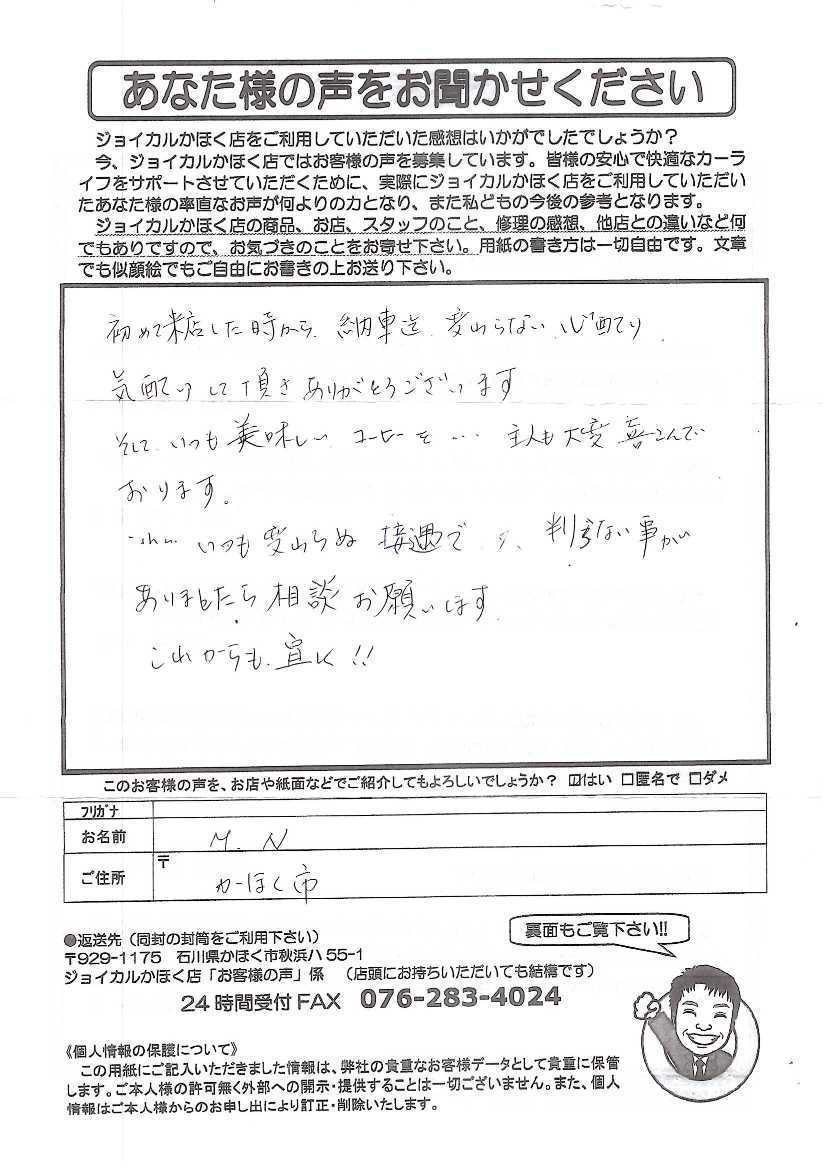 あなた様の声をお聞かせください
ジョイカルかほく店をご利用していただいた感想はいかがでしたでしょうか?
今、ジョイカルかほく店ではお客様の声を募集しています。皆様の安心で快適なカーラ
イフをサポートさせていただくために、実際にジョイカルかほく店をご利用していただい
たあなた様の率直なお声が何よりの力となり、また私どもの今後の参考となります。
ジョイカルかほく店の商品、お店、スタッフのこと、修理の感想、他店との違いなど何
でもありですので、お気づきのことをお寄せ下さい。用紙の書き方は一切自由です。文章
でも似顔絵でもご自由にお書きの上お送り下さい。
初めて来店した時から、納車迄、変わらない心配り、
気配りして頂きありがとうございます
そして、いつも美味しいコーヒーを… 主人も大変喜こんで
おります。
いつも変わらぬ接遇で 判らない事が
ありましたら相談お願いします
これからも、宜く!!
このお客様の声を、お店や紙面などでご紹介してもよろしいでしょうか? ☑はい □匿名で □ダメ
フリガナ
お名前 M. N
ご住所 〒 かほく市
裏面もご覧下さい!!
●返送先(同封の封筒をご利用下さい)
〒929-1175 石川県かほく市秋浜ハ55-1
ジョイカルかほく店「お客様の声」係 (店頭にお持ちいただいても結構です)
24時間受付FAX 076-283-4024
《個人情報の保護について》
この用紙にご記入いただきました情報は、弊社の貴重なお客様データとして貴重に保管
します。ご本人様の許可無く外部への開示・提供することは一切ございません。また、個人
情報はご本人様からのお申し出により訂正・削除いたします。